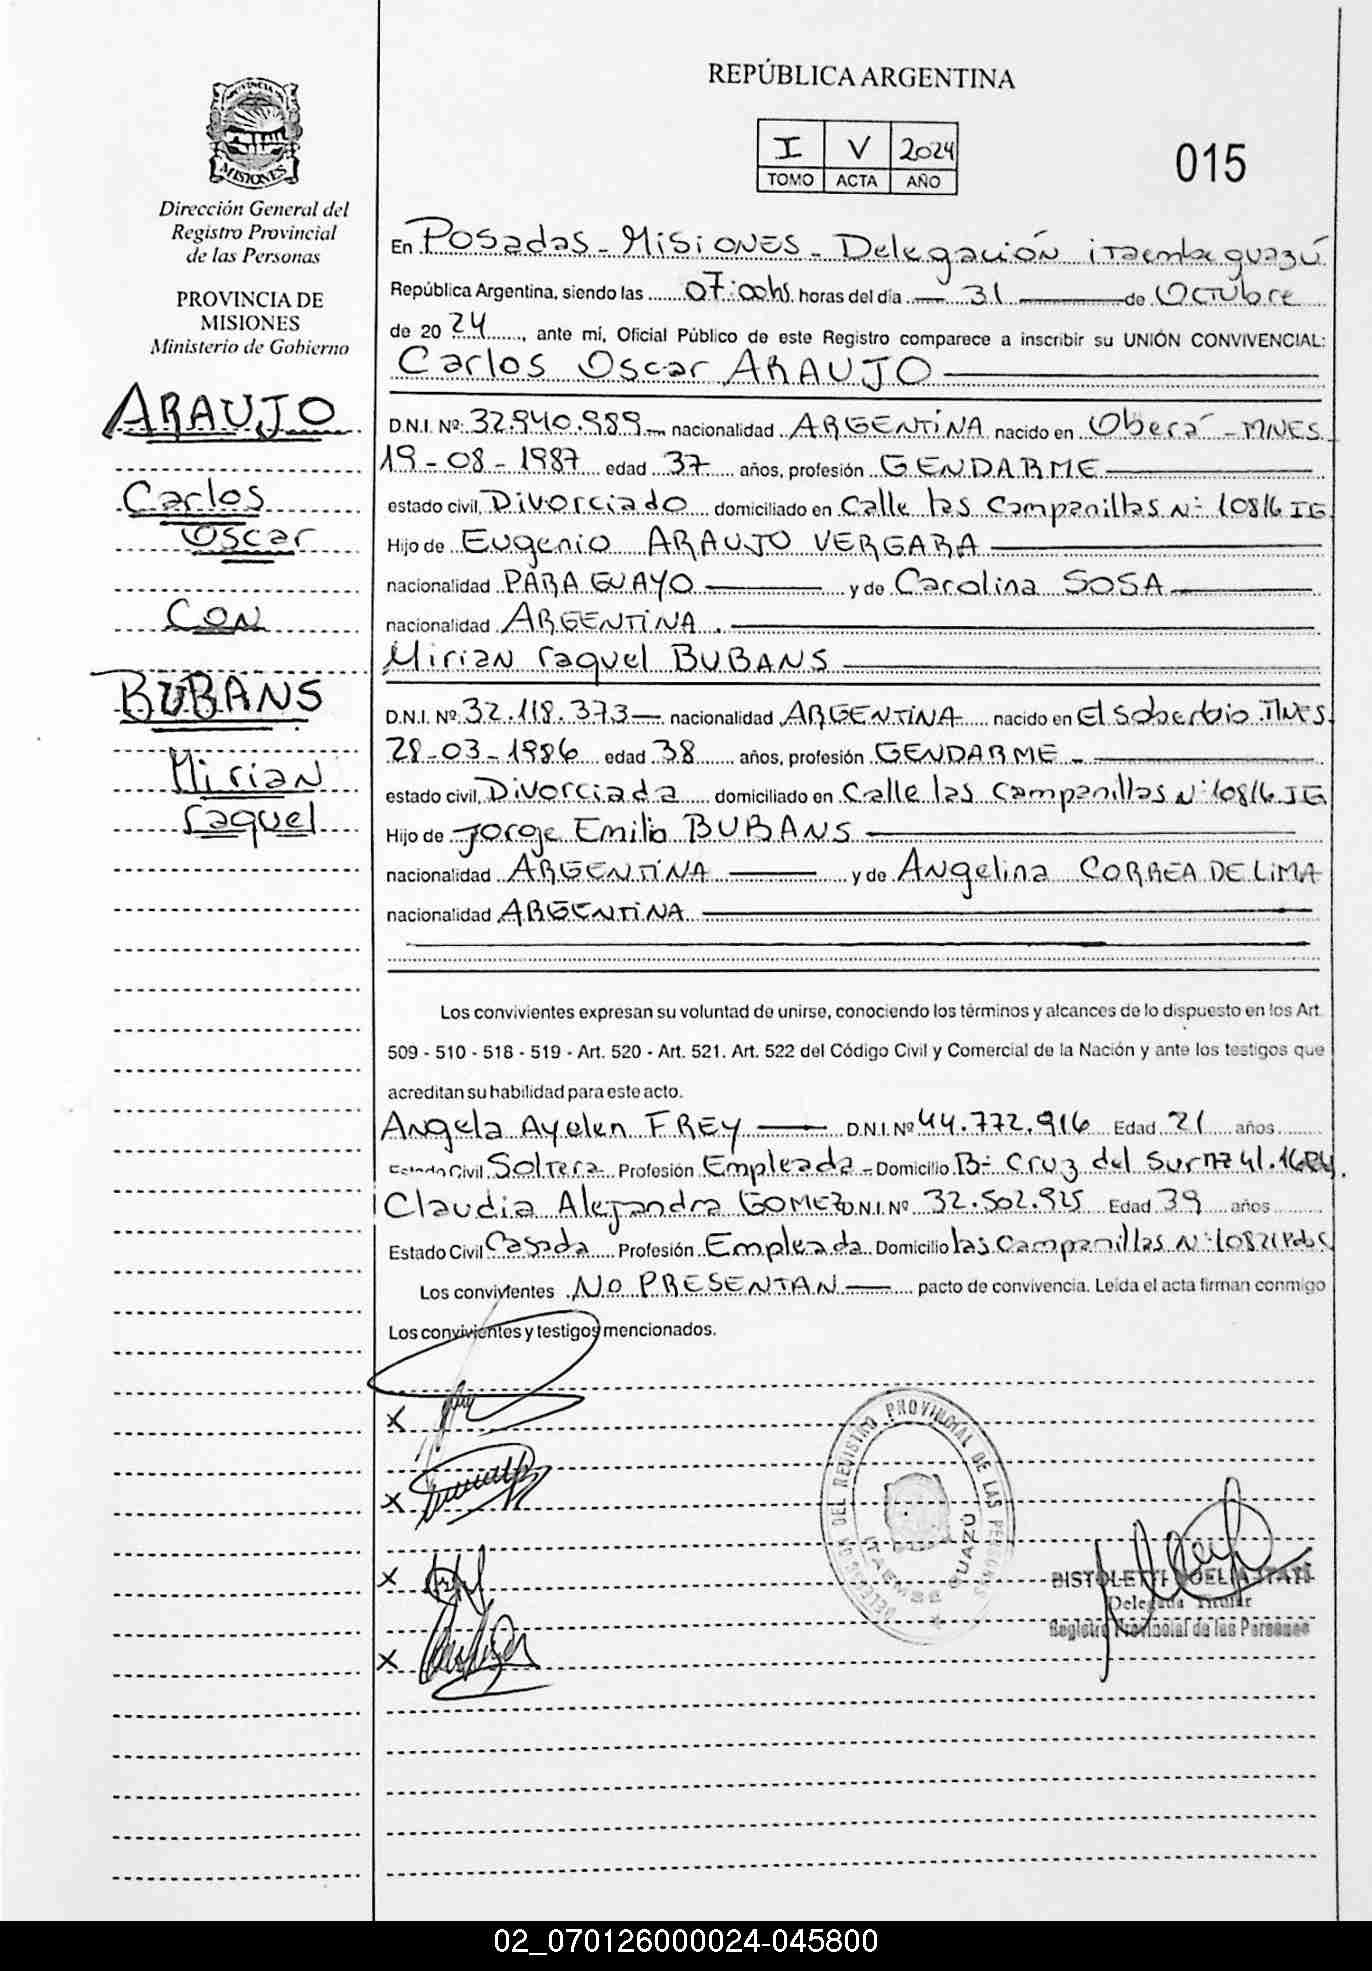 REPÚBLICA ARGENTINA
I V 2024
TOMO ACTA AÑO
015
MISIONES
Dirección General del
Registro Provincial
de las Personas
PROVINCIA DE
MISIONES
Ministerio de Gobierno
ARAUJO
Carlos
Oscar
CON
BUBANS
Mirian
raquel
En Posadas - Misiones - Delegación itaembe guazú
República Argentina, siendo las 07:00hs. horas del día 31 de Octubre
de 20 24, ante mí, Oficial Público de este Registro comparece a inscribir su UNIÓN CONVIVENCIAL:
Carlos Oscar ARAUJO
D.N.I. Nº 32.940.989 nacionalidad ARGENTINA nacido en Oberá - MNES
19-08-1987 edad 37 años, profesión GENDARME
estado civil, Divorciado domiciliado en Calle las Campanillas N- 10816 IG
Hijo de Eugenio ARAUJO VERGARA
nacionalidad PARAGUAYO y de Carolina SOSA
nacionalidad ARGENTINA.
Mirian raquel BUBANS
D.N.I. Nº 32.118.373 nacionalidad ARGENTINA nacido en El Soberbio MNES
28-03-1986 edad 38 años, profesión GENDARME -
estado civil, Divorciada domiciliado en Calle las Campanillas N- 10816 IG
Hijo de Jorge Emilio BUBANS
nacionalidad ARGENTINA y de Angelina CORREA DE LIMA
nacionalidad ARGENTINA
Los convivientes expresan su voluntad de unirse, conociendo los términos y alcances de lo dispuesto en los Art.
509 - 510 - 518 - 519 - Art. 520 - Art. 521. Art. 522 del Código Civil y Comercial de la Nación y ante los testigos que
acreditan su habilidad para este acto.
Angela Ayelen FREY D.N.I. Nº 44.772.916 Edad 21 años
Estado Civil Soltera Profesión Empleada - Domicilio B- Cruz del Sur MZ 41.
Claudia Alejandra GOMEZ D.N.I. Nº 32.502.925 Edad 39 años
Estado Civil Casada Profesión Empleada Domicilio las Campanillas N-
Los convivientes NO PRESENTAN pacto de convivencia. Leída el acta firman conmigo
Los convivientes y testigos mencionados.
X
X
X
X
DEL REGISTRO PROVINCIAL DE LAS PERSONAS
ITAEMBE GUAZÚ
Delegada Titular
Registro Provincial de las Personas
02_070126000024-045800